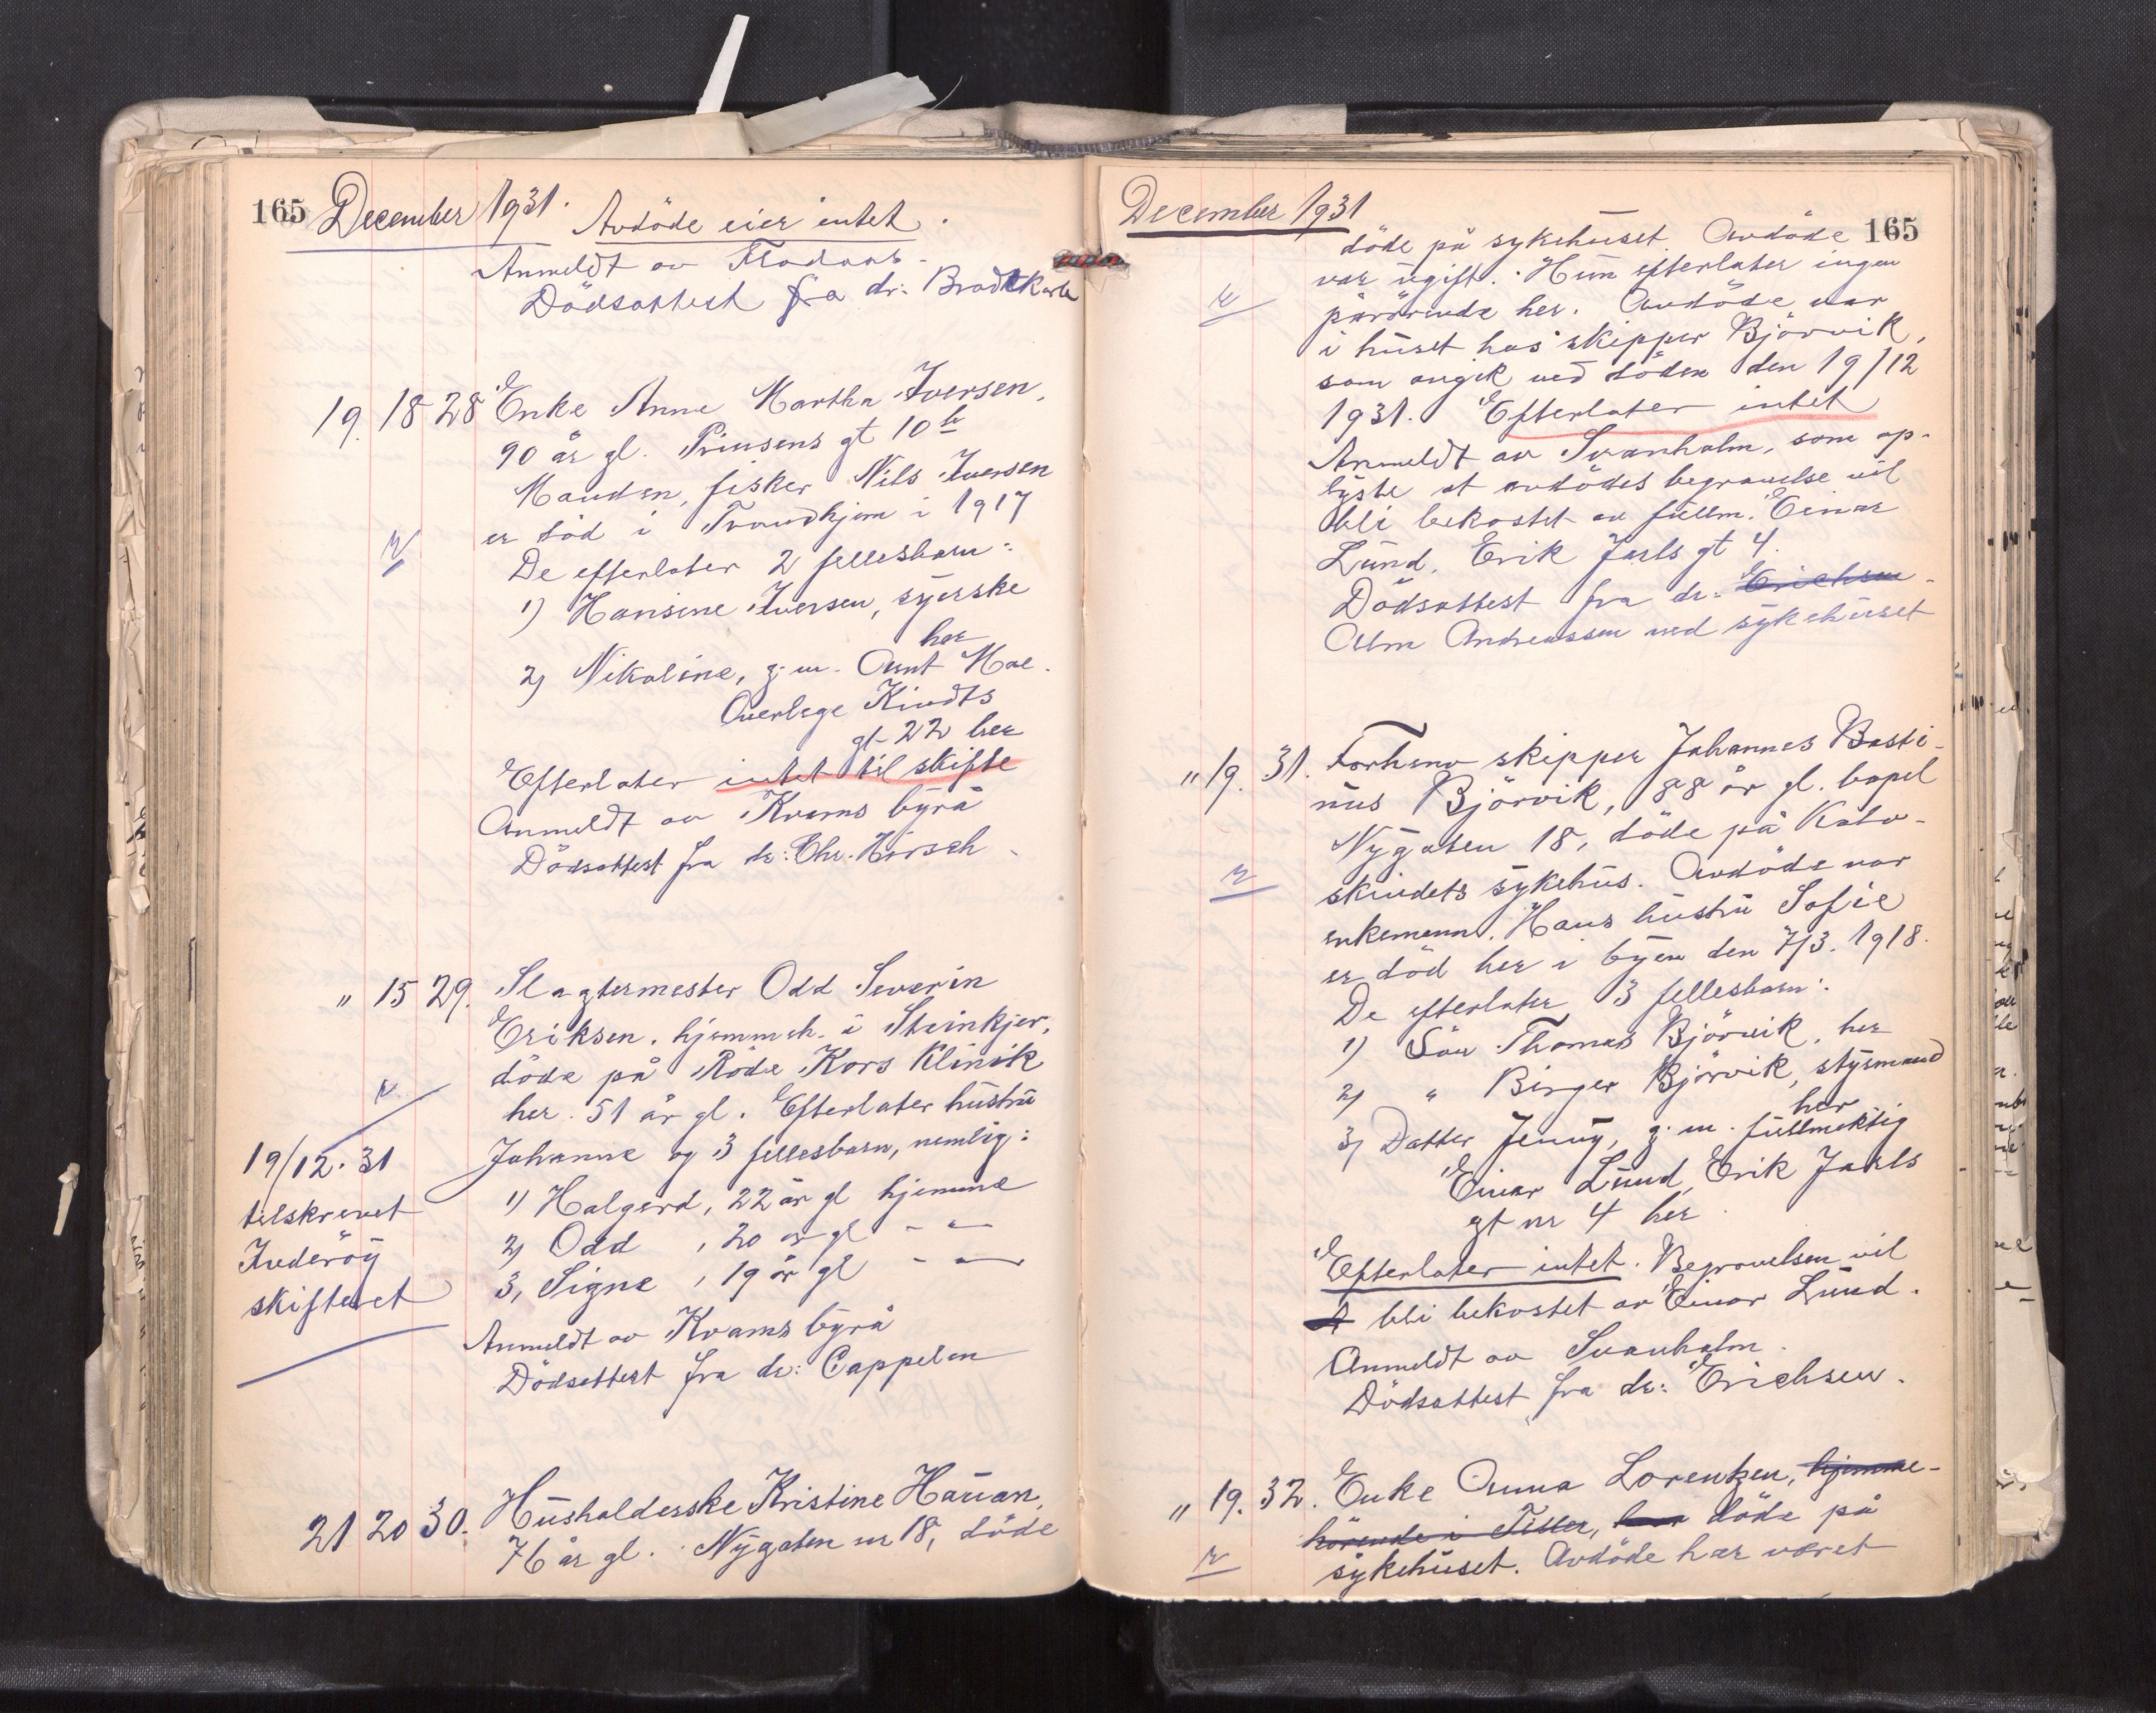 165 December 1931.
Avdöde eier intet.
Anmeldt av
Dödsattest fra dr:
19. 18 28 Enke Anne Martha Iversen,
90 år gl. Prinsens gt 10 b
Manden, fisker Nils Iversen
er död i Trondhjem i 1917
De efterlater 2 fellesbarn:
1) Hansine Iversen, syerske
her
2) Nikoline, g. m. Arnt Moe.
Overlege Kindts
gt 22 her
Efterlater intet til skifte
Anmeldt av Krams byrå
Dödsattest fra dr: Chr. Hirsch.
" 15 29. Slagtermester Odd Severin
Eriksen, hjemmeh. i Steinkjer,
döde på Röde Kors Klinik
her. 51 år gl. Efterlater hustru
Johanne og 3 fellesbarn, nemlig:
1) Halgerd, 22 år gl hjemme
2) Odd , 20 år gl - " -
3, Signe , 19 år gl - " -
Anmeldt av Krams byrå
Dödsattest fra dr: Cappelen
19/12.31
tilskrevet
Inderöy
skifteret
21 20 30. Husholderske Kristine Hauan,
76 år gl. Nygaten nr 18, döde
December 1931
165
döde på sykehuset. Avdöde
var ugift. Hun efterlater ingen
pårörende her. Avdöde var
i huset hos skipper Björvik,
som avgik ved döden den 19/12
1931. Efterlater intet
Anmeldt av Svanholm, som op-
lyste at avdödes begravelse vil
bli bekostet av fullm. Einar
Lund, Erik Jarls gt 4.
Dödsattest fra dr: Erichsen
Alm Andreassen ved sykehuset
" 19. 31. Forhenv skipper Johannes Basti-
nus Björvik, 88 år gl. bopel
Nygaten 18, döde på Kalv-
skindets sykehus. Avdöde var
enkemann. Hans hustru Sofie
er död her i byen den 7/3. 1918.
De efterlater 3 fellesbarn:
1) Sön Thomas Björvik, her
2) " Birger Björvik, styrmand
her
3) Datter Jenny, g. m. fullmektig
Einar Lund, Erik Jarls
gt nr 4 her.
Efterlater intet. Begravelsen vil
bli bekostet av Einar Lund.
Anmeldt av Svanholm.
Dödsattest fra dr: Erichsen.
" 19. 32. Enke Anna Lorentzen, hjemme-
hörende i Tiller, döde på
sykehuset. Avdöde har været